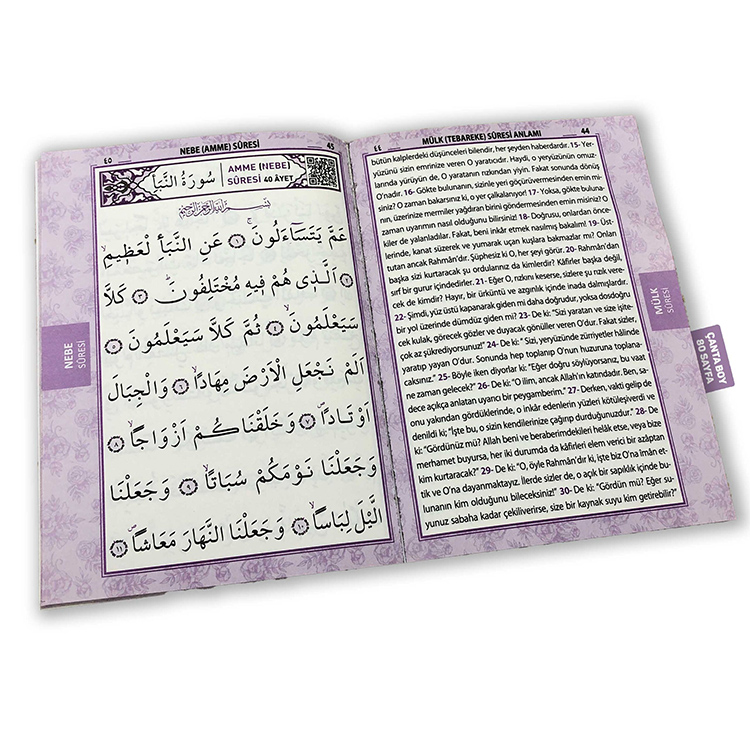 ٤٤ MÜLK (TEBAREKE) SÛRESİ ANLAMI 44
bütün kalplerdeki düşünceleri bilendir, her şeyden haberdardır. 15- Yer-
yüzünü sizin emrinize veren O yaratıcıdır. Haydi, o yeryüzünün omuz-
larında yürüyün de, O yaratanın rızkından yiyin. Fakat sonunda dönüş
O'nadır. 16- Gökte bulunanın, sizinle yeri göçürüvermesinden emin mi-
siniz? O zaman bakarsınız ki, o yer çalkalanıyor! 17- Yoksa, gökte buluna-
nın, üzerinize mermiler yağdıran birini göndermesinden emin misiniz? O
zaman uyarımın nasıl olduğunu bilirsiniz! 18- Doğrusu, onlardan önce-
kiler de yalanladılar. Fakat, beni inkâr etmek nasılmış bakalım! 19- Üst-
lerinde, kanat süzerek ve yumarak uçan kuşlara bakmazlar mı? Onları
tutan ancak Rahman'dır. Şüphesiz ki O, her şeyi görür. 20- Rahman'dan
başka sizi kurtaracak şu ordularınız da kimlerdir? Kâfirler başka değil,
sırf bir gurur içindedirler. 21- Eğer O, rızkını keserse, sizlere şu rızık vere-
cek de kimdir? Hayır, bir ürküntü ve azgınlık içinde inada dalmışlardır.
22- Şimdi, yüz üstü kapanarak giden mi daha doğrudur, yoksa dosdoğru
bir yol üzerinde dümdüz giden mi? 23- De ki: "Sizi yaratan ve size işite-
cek kulak, görecek gözler ve duyacak gönüller veren O'dur. Fakat sizler,
çok az şükrediyorsunuz!" 24- De ki: " Sizi, yeryüzünde zürriyetler hâlinde
yaratıp yayan O'dur. Sonunda hep toplanıp O'nun huzuruna toplana-
caksınız." 25- Böyle iken diyorlar ki: "Eğer doğru söylüyorsanız, bu vaat
ne zaman gelecek?" 26- De ki: "O ilim, ancak Allah'ın katındadır. Ben, sa-
dece açıkça anlatan uyarıcı bir peygamberim." 27- Derken, vakti gelip de
onu yakından gördüklerinde, o inkâr edenlerin yüzleri kötüleşiverdi ve
denildi ki; "İşte bu, o sizin kendilerinize çağırıp durduğunuzdur." 28- De
ki: "Gördünüz mü? Allah beni ve beraberimdekileri helâk etse, veya bize
merhamet buyursa, her iki durumda da kâfirleri elem verici bir azâptan
kim kurtaracak?" 29- De ki: "O, öyle Rahmân'dır ki, işte biz O'na îmân et-
tik ve O'na dayanmaktayız. İlerde sizler de, o açık bir sapıklık içinde bu-
lunanın kim olduğunu bileceksiniz!" 30- De ki: "Gördün mü? Eğer su-
yunuz sabaha kadar çekiliverirse, size bir kaynak suyu kim getirebilir?"
MÜLK
SÛRESİ
ÇANTA BOY
80 SAYFA
٤٥ NEBE (AMME) SÛRESİ 45
سُورَةُ النَّبَأِ
AMME (NEBE)
SÛRESİ 40 ÂYET
بِسْمِ اللّٰهِ الرَّحْمٰنِ الرَّحِيمِ
عَمَّ يَتَسَاءَلُونَۚ ﴿١﴾ عَنِ النَّبَأِ الْعَظِيمِۙ
﴿٢﴾ اَلَّذِي هُمْ فِيهِ مُخْتَلِفُونَۜ ﴿٣﴾ كَلَّا
سَيَعْلَمُونَۙ ﴿٤﴾ ثُمَّ كَلَّا سَيَعْلَمُونَ ﴿٥﴾
اَلَمْ نَجْعَلِ الْاَرْضَ مِهَادًاۙ ﴿٦﴾ وَالْجِبَالَ
اَوْتَادًاۖ ﴿٧﴾ وَخَلَقْنَاكُمْ اَزْوَاجًاۙ ﴿٨﴾
وَجَعَلْنَا نَوْمَكُمْ سُبَاتًاۙ ﴿٩﴾ وَجَعَلْنَا
الَّيْلَ لِبَاسًاۙ ﴿١٠﴾ وَجَعَلْنَا النَّهَارَ مَعَاشًاۖ ﴿١١﴾
NEBE
SÛRESİ